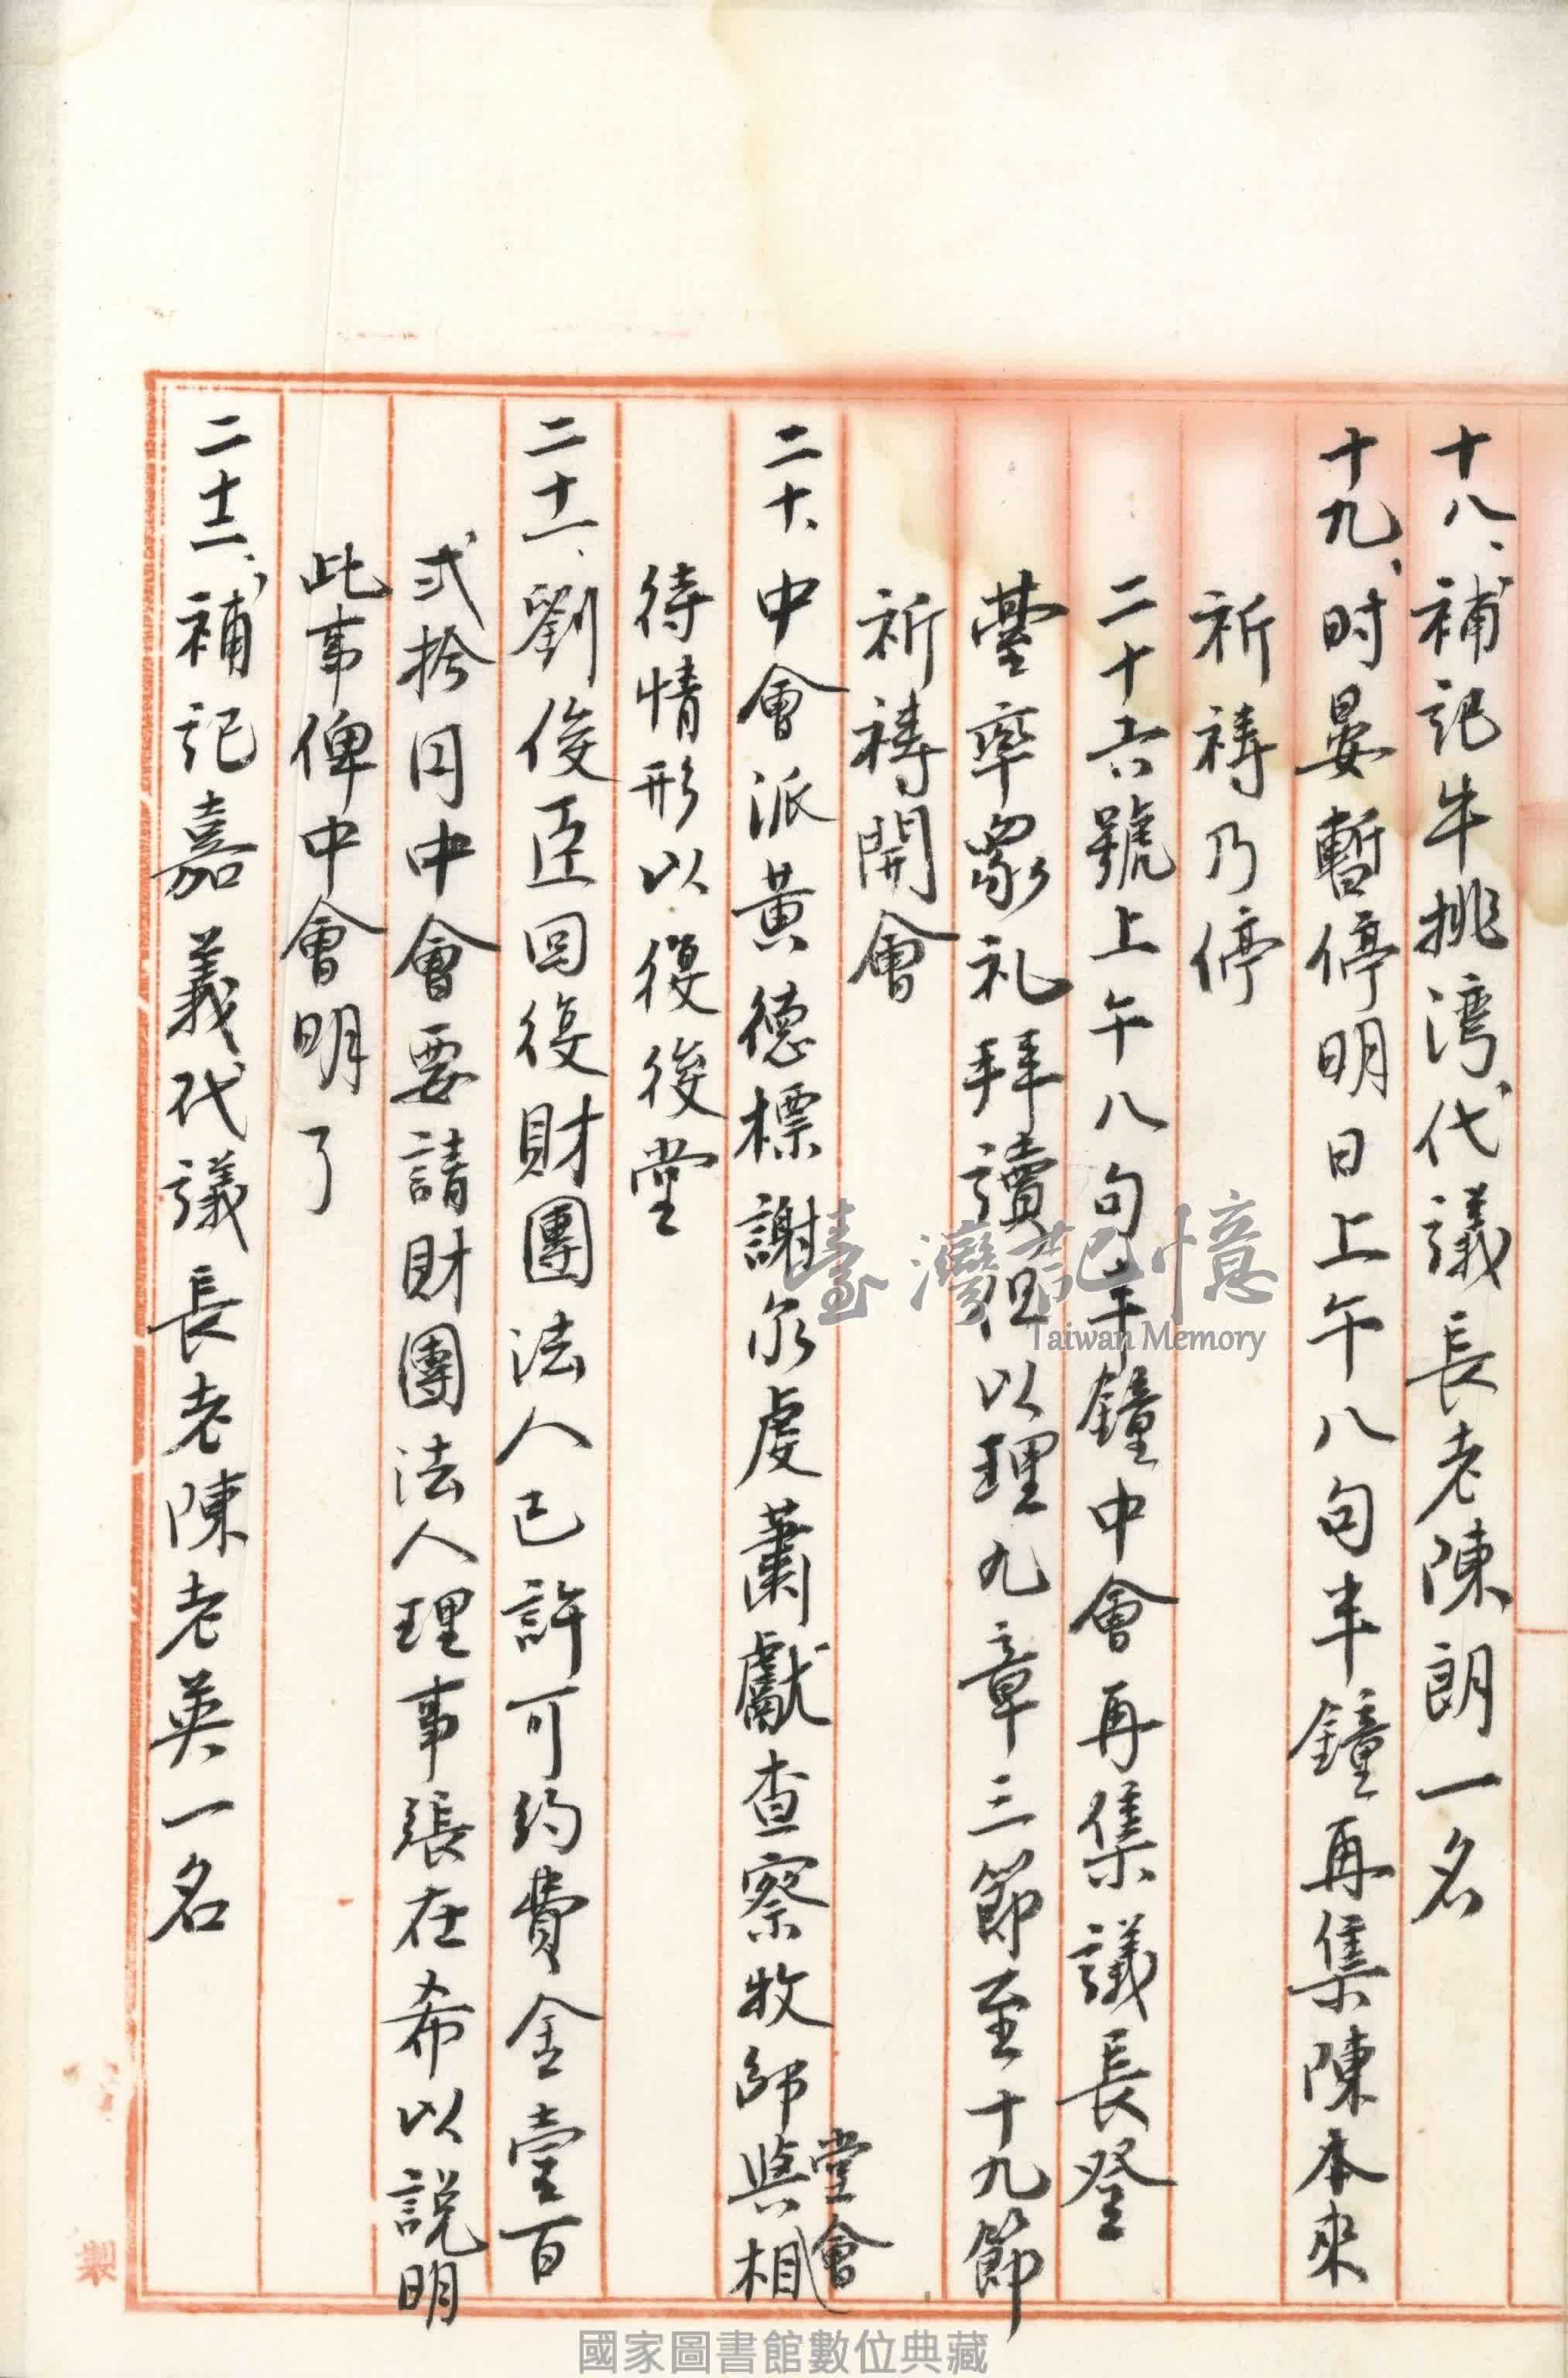 十八、補記牛挑湾代議長老陳朗一名
十九、时晏暫停明日上午八句半鐘再集陳本來
祈禱乃停
二十六號上午八句半鐘中會再集議長登
臺率眾礼拜讀但以理九章三節至十九節
祈禱開會
二十、中會派黃德標謝尔虔蕭獻查察牧師與堂會相
待情形以復後堂
二十一、劉俊臣回復財團法人已許可約費金壹百
弍拾円中會要請財團法人理事張在希以說明
此事俾中會明了
二十二、補記嘉義代議長老陳老英一名
臺灣記憶
Taiwan Memory
製
國家圖書館數位典藏